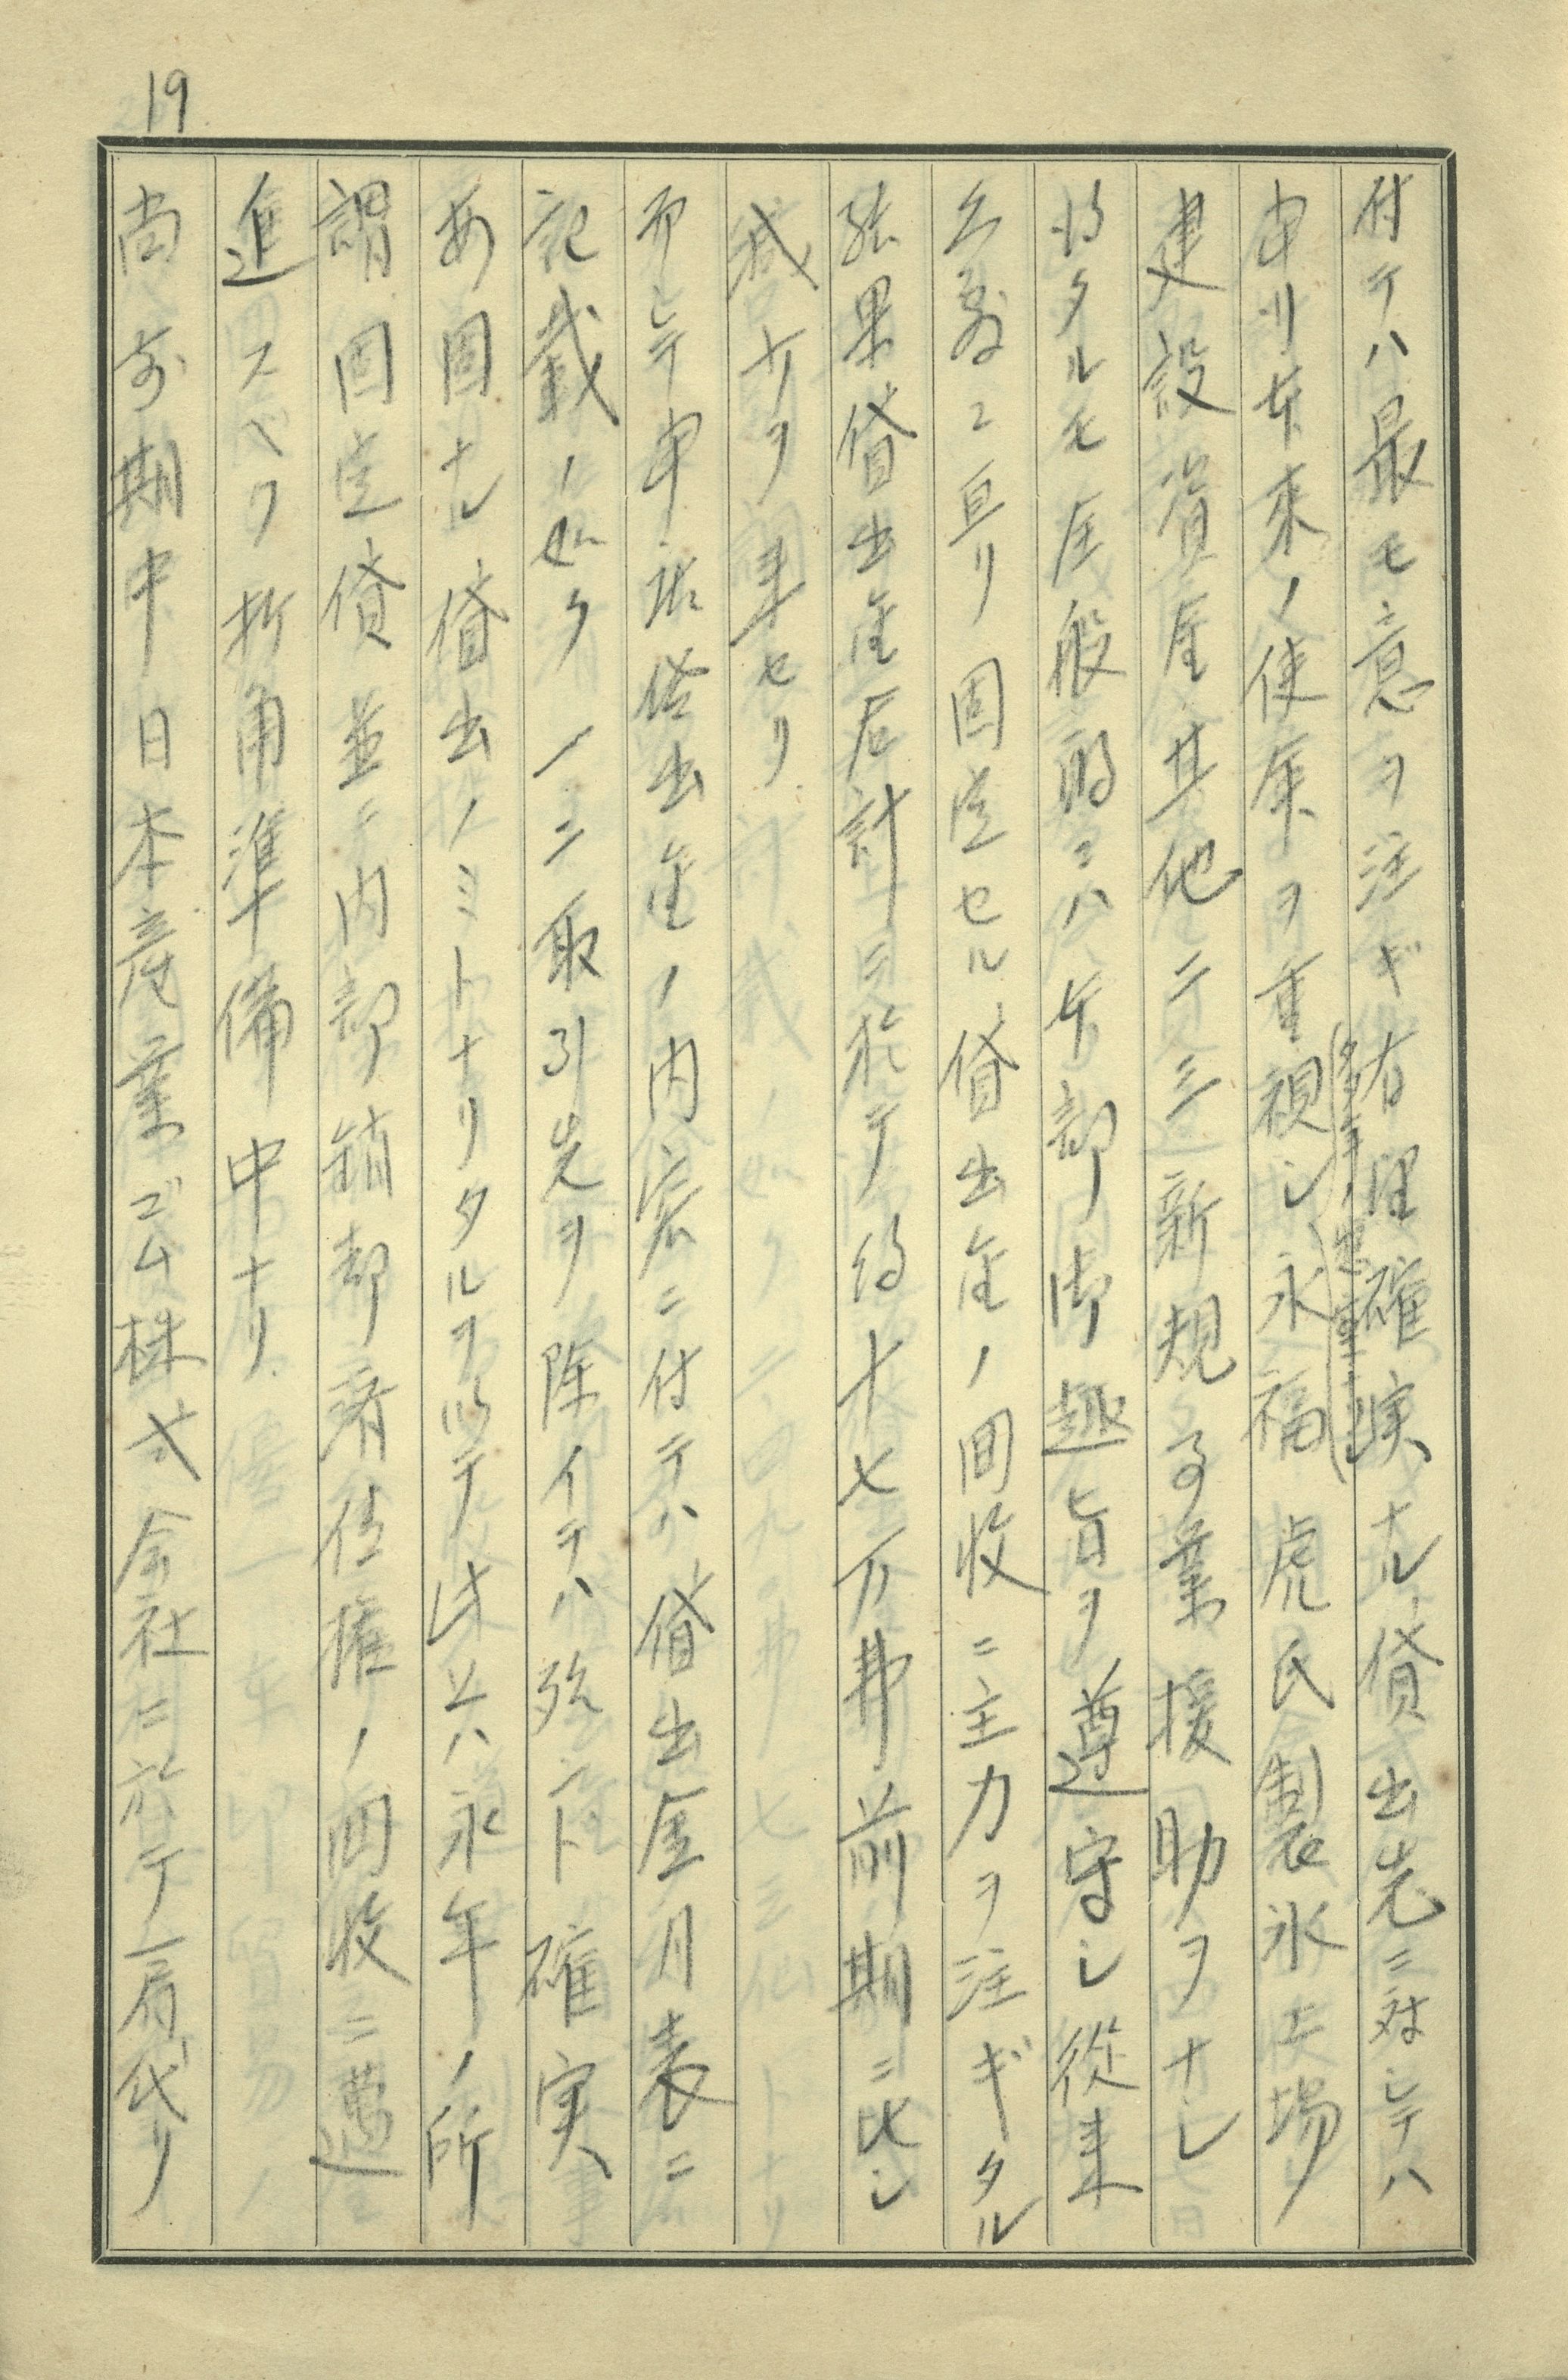 19
付テハ最モ意ヲ注ギ有望確実ナル貸出先ニ対シテハ
申リ本来ノ使命ヲ重視シ永福虎氏製氷工場
建設資金其他二三新規事業援助ヲナシ
将タルモ全般的ニハ本部御趣旨ヲ遵守シ従来
ニ亘リ固定セル貸出金ノ回收ニ主力ヲ注ギタル
結果貸出金合計ニ於テ約十七万弗前期ニ比シ
減ナリヲ来セリ
而シテ申訳貸出金ノ内容ニ付テハ貸出金月表ニ
記載ノ如ク一二取引先ヲ除イテハ殆ント確実
安固ナル貸出ノミトナリタルヲ以テ此上ハ永年ノ所
謂固定貸並ニ内部銷却済債権ノ回收ニ邁
進スベク折角準備中ナリ
尚前期中日本産業ゴム株式会社ニ於テ肩代リ